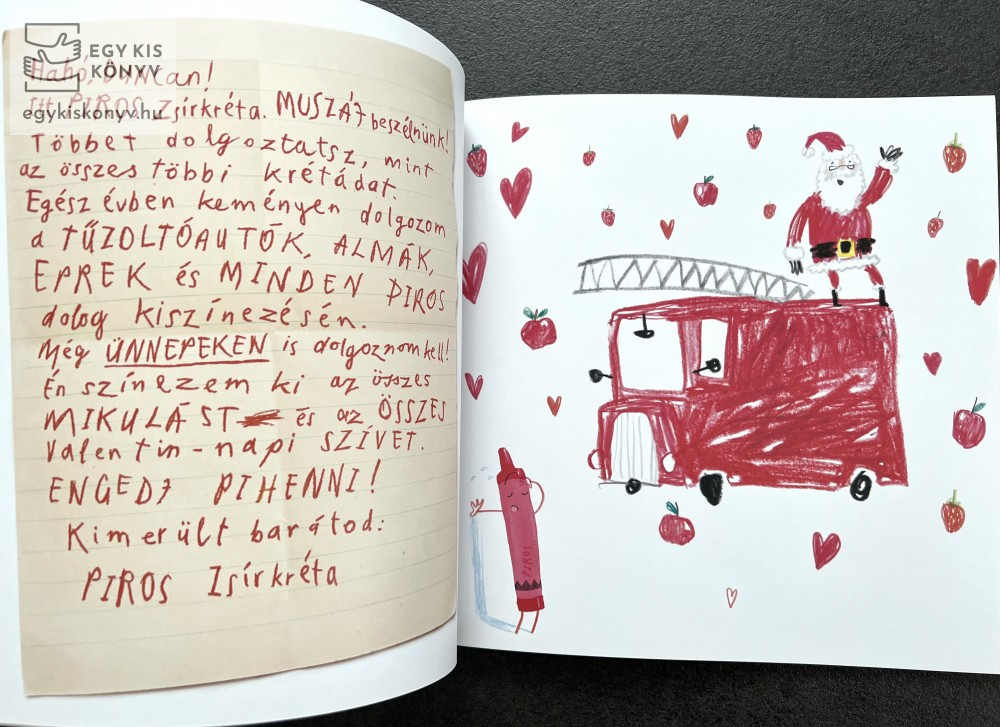 EGY KIS
KÖNYV
egykiskonyv.hu
Hahó, Duncan!
Itt PIROS Zsírkréta. MUSZÁJ beszélnünk!
Többet dolgoztatsz, mint
az összes többi krétádat.
Egész évben keményen dolgozom
a TŰZOLTÓAUTÓK, ALMÁK,
EPREK és MINDEN PIROS
dolog kiszínezésén.
Még ÜNNEPEKEN is dolgoznom kell!
Én színezem ki az összes
MIKULÁST és az ÖSSZES
Valentin-napi SZÍVET.
ENGEDJ PIHENNI!
Kimerült barátod:
PIROS Zsírkréta
PIROS